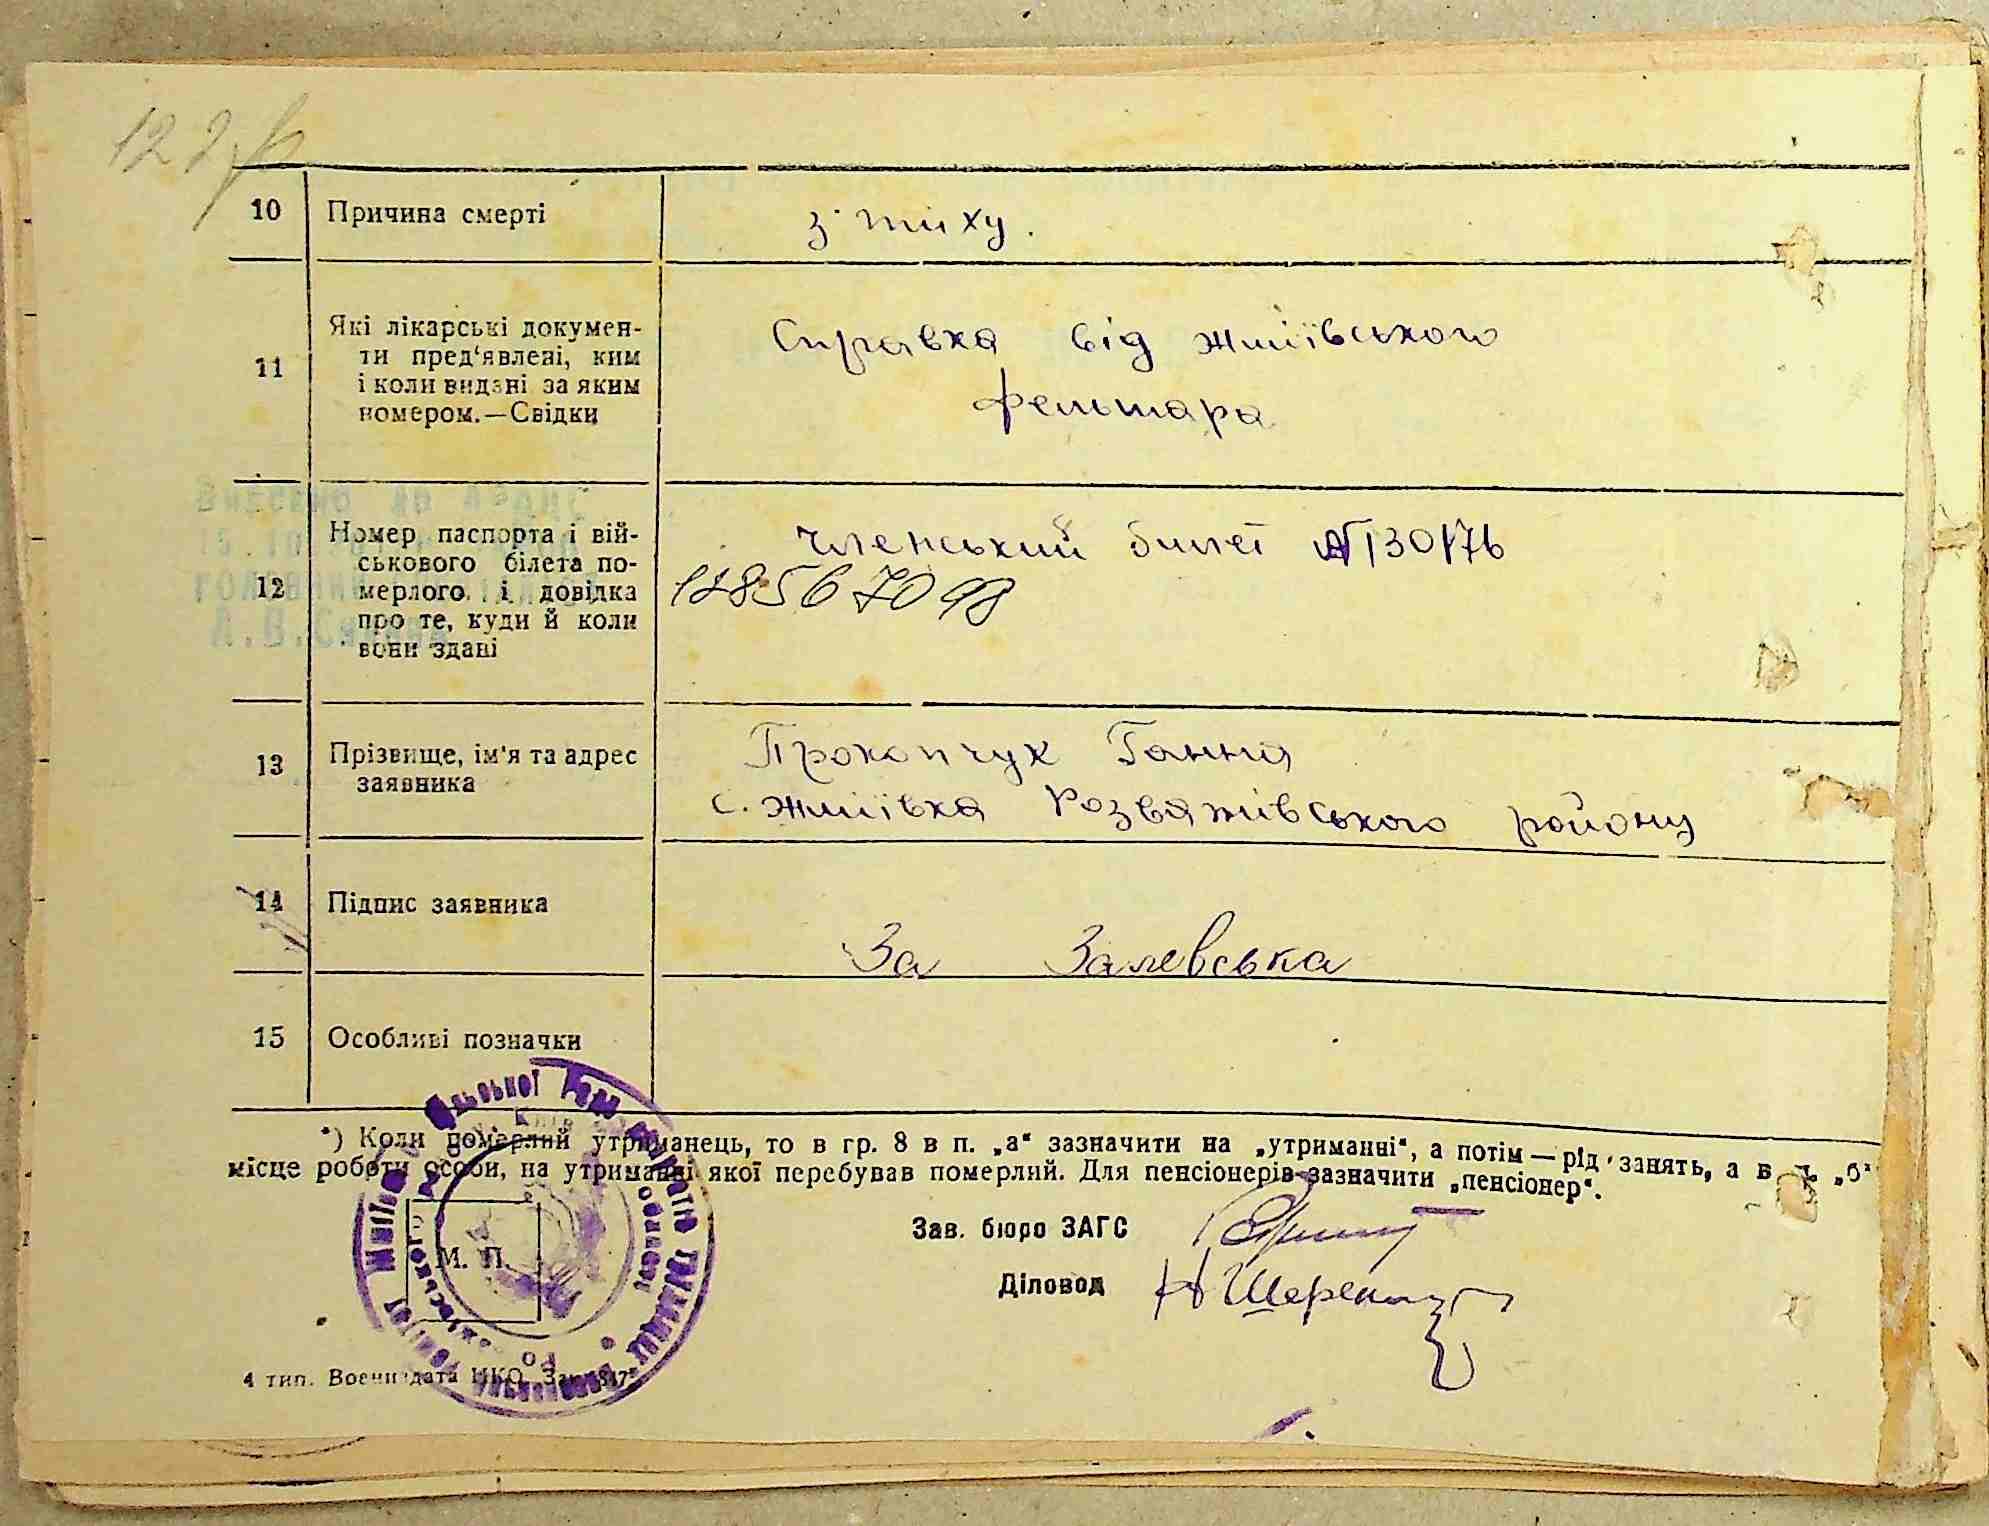 10 Причина смерті
з тиху.
11 Які лікарські докумен-
ти пред'явлені, ким
і коли видані за яким
номером.—Свідки
Справка від Жміївського
фельшара
12 Номер паспорта і вій-
ськового білета по-
мерлого і довідка
про те, куди й коли
вони здані
Членський билет №130176
13 Прізвище, ім'я та адрес
заявника
Прокопчук Ганна
с. Жміївка Розважівського району
14 Підпис заявника
За Залевська
15 Особливі позначки
*) Коли померлий утриманець, то в гр. 8 в п. „а“ зазначити на „утриманні“, а потім — рід занять, а в п. „б“
місце роботи особи, на утриманні якої перебував померлий. Для пенсіонерів зазначити „пенсіонер“.
Зав. бюро ЗАГС
Діловод
М. П.
4 тип. Воениздата НКО. Зак.